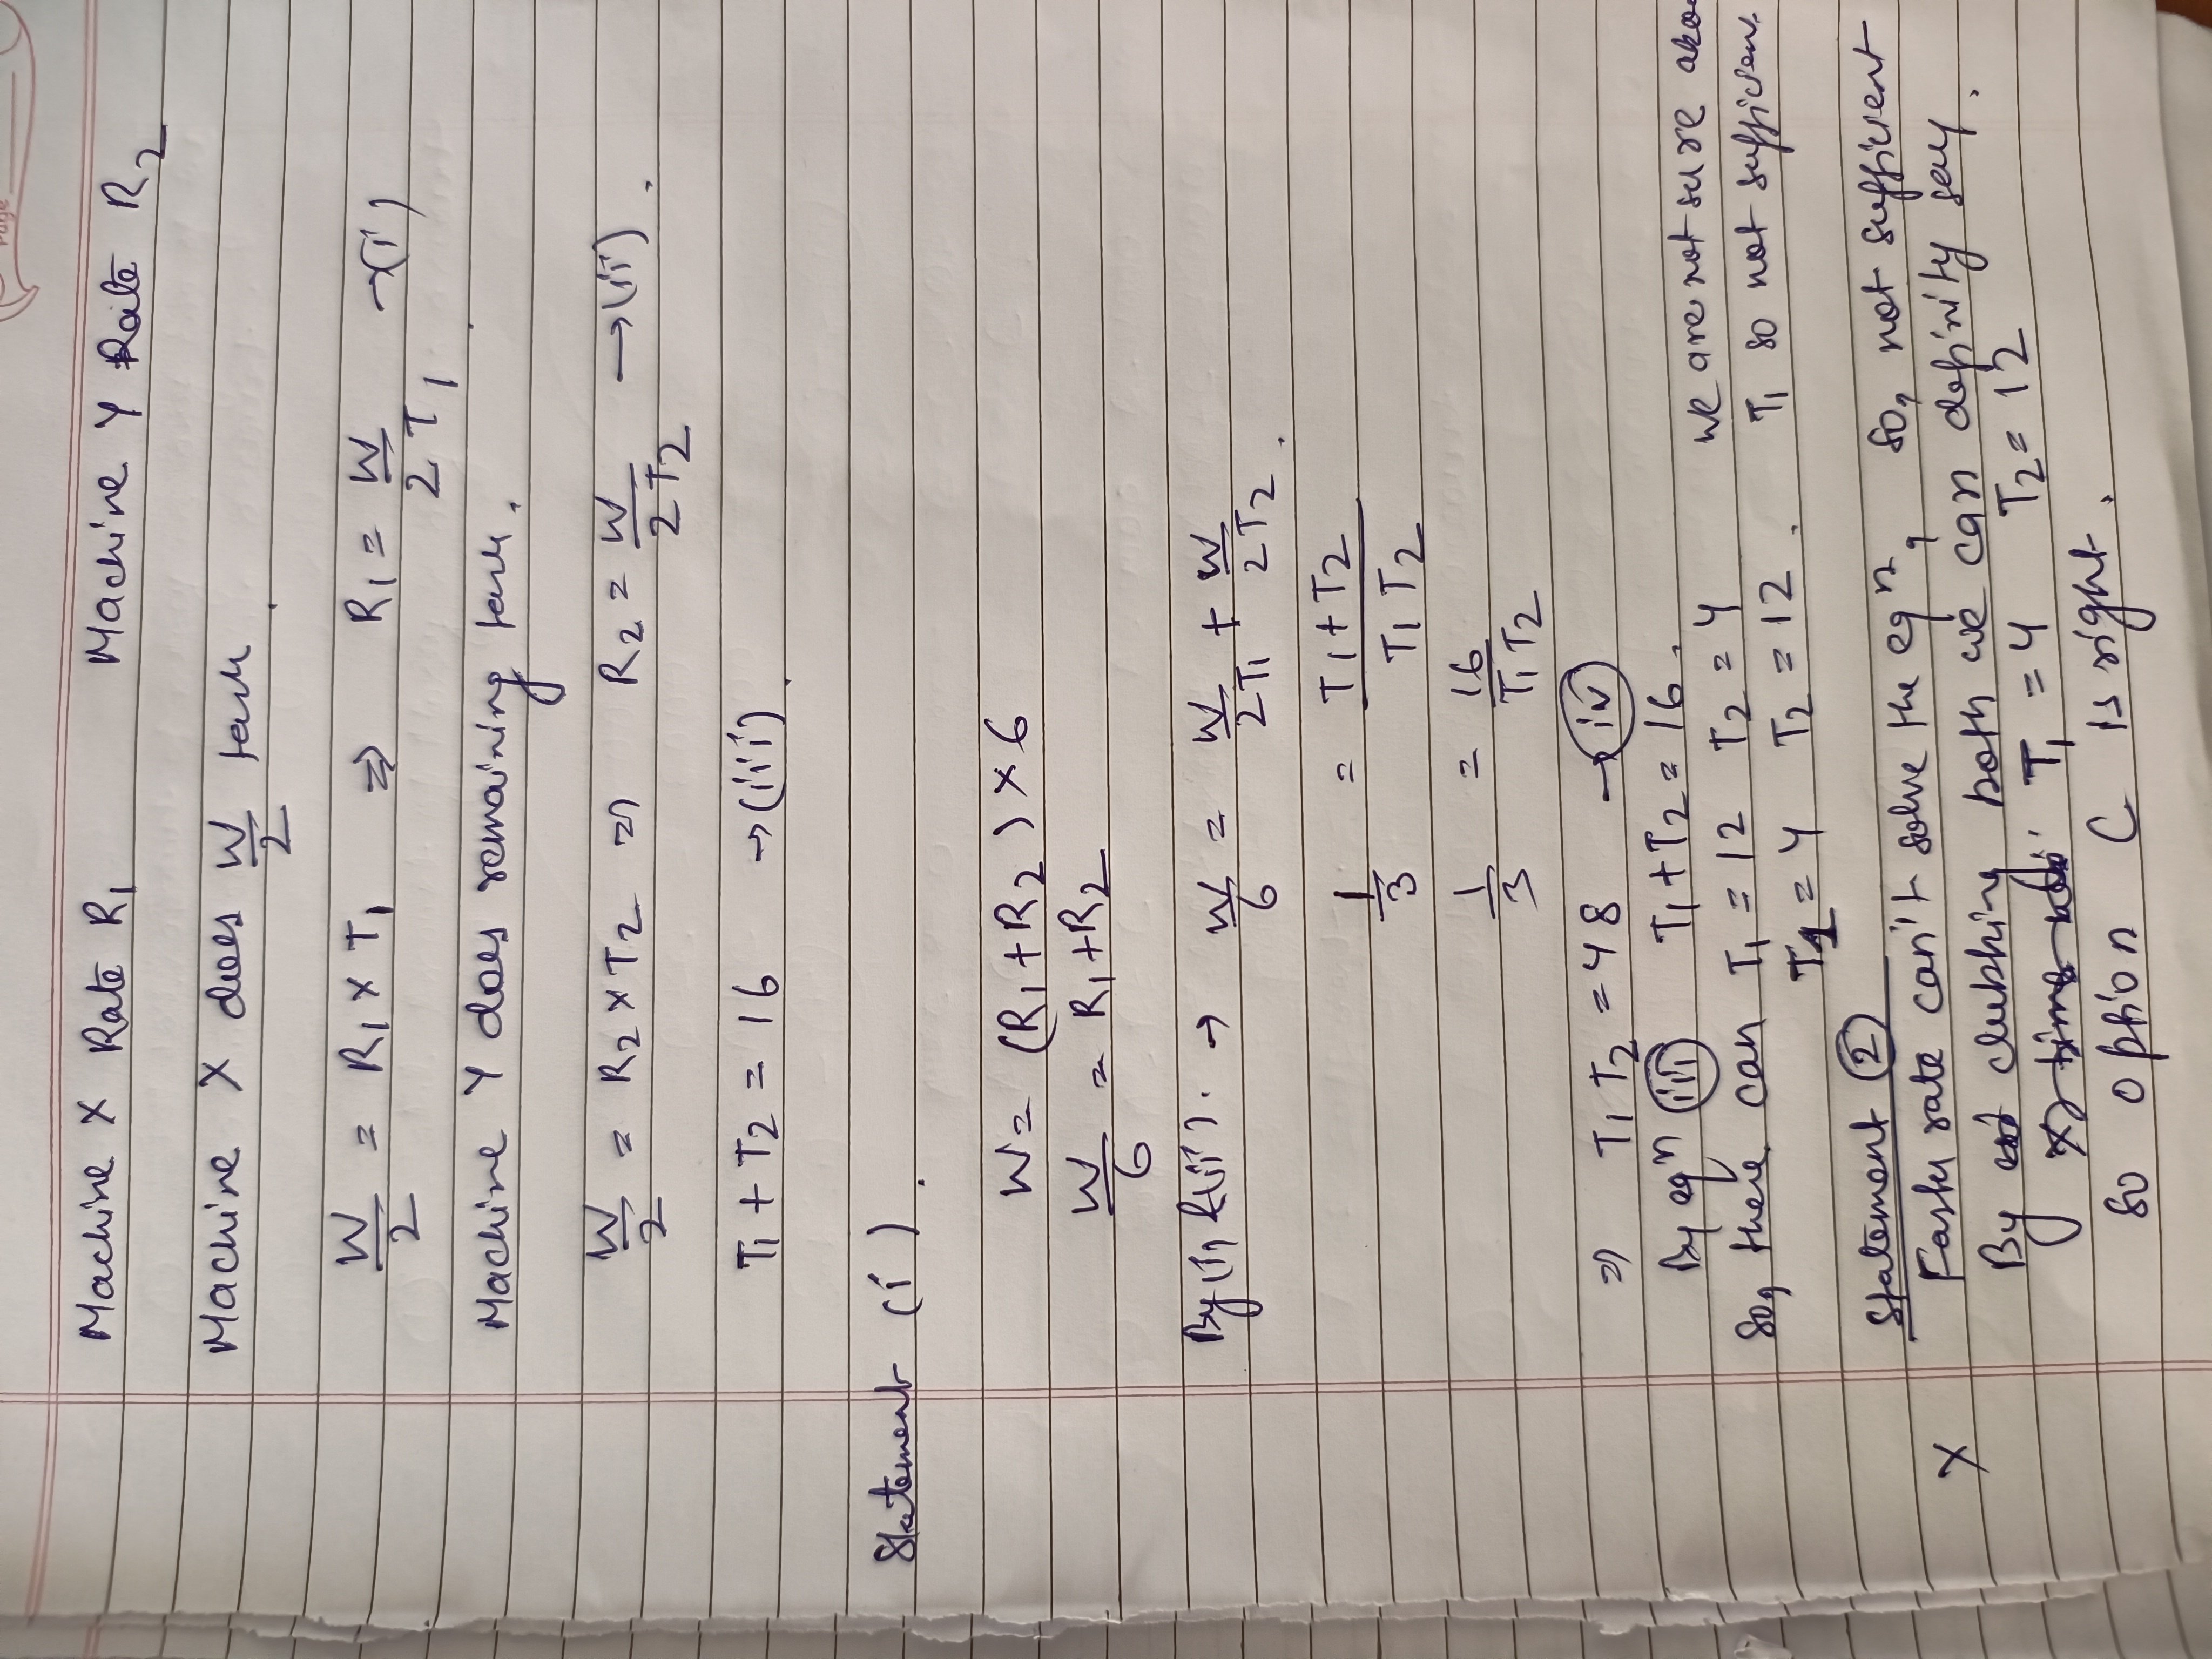 Page
Machine X Rate R₁ Machine Y Rate R₂
Machine X does W/2 task
W/2 = R₁ × T₁ ⇒ R₁ = W/2T₁ →(i)
Machine Y does remaining task.
W/2 = R₂ × T₂ ⇒ R₂ = W/2T₂ →(ii).
T₁ + T₂ = 16 →(iii)
Statement (i).
W = (R₁+R₂) × 6
W/6 = R₁+R₂
By (i) &(ii). → W/6 = W/2T₁ + W/2T₂.
1/3 = T₁+T₂/T₁T₂
1/3 = 16/T₁T₂
⇒ T₁T₂ = 48 → (iv)
By eqⁿ (iii) T₁+T₂ = 16.
So, there can T₁ = 12 T₂ = 4 we are not sure
T₁ = 4 T₂ = 12. T₁ so not sufficient
Statement (2)
X Fast rate can't solve the eqⁿ, so, not sufficient
By clubbing both we can definity say.
T₁ = 4 T₂ = 12
So option C is right.